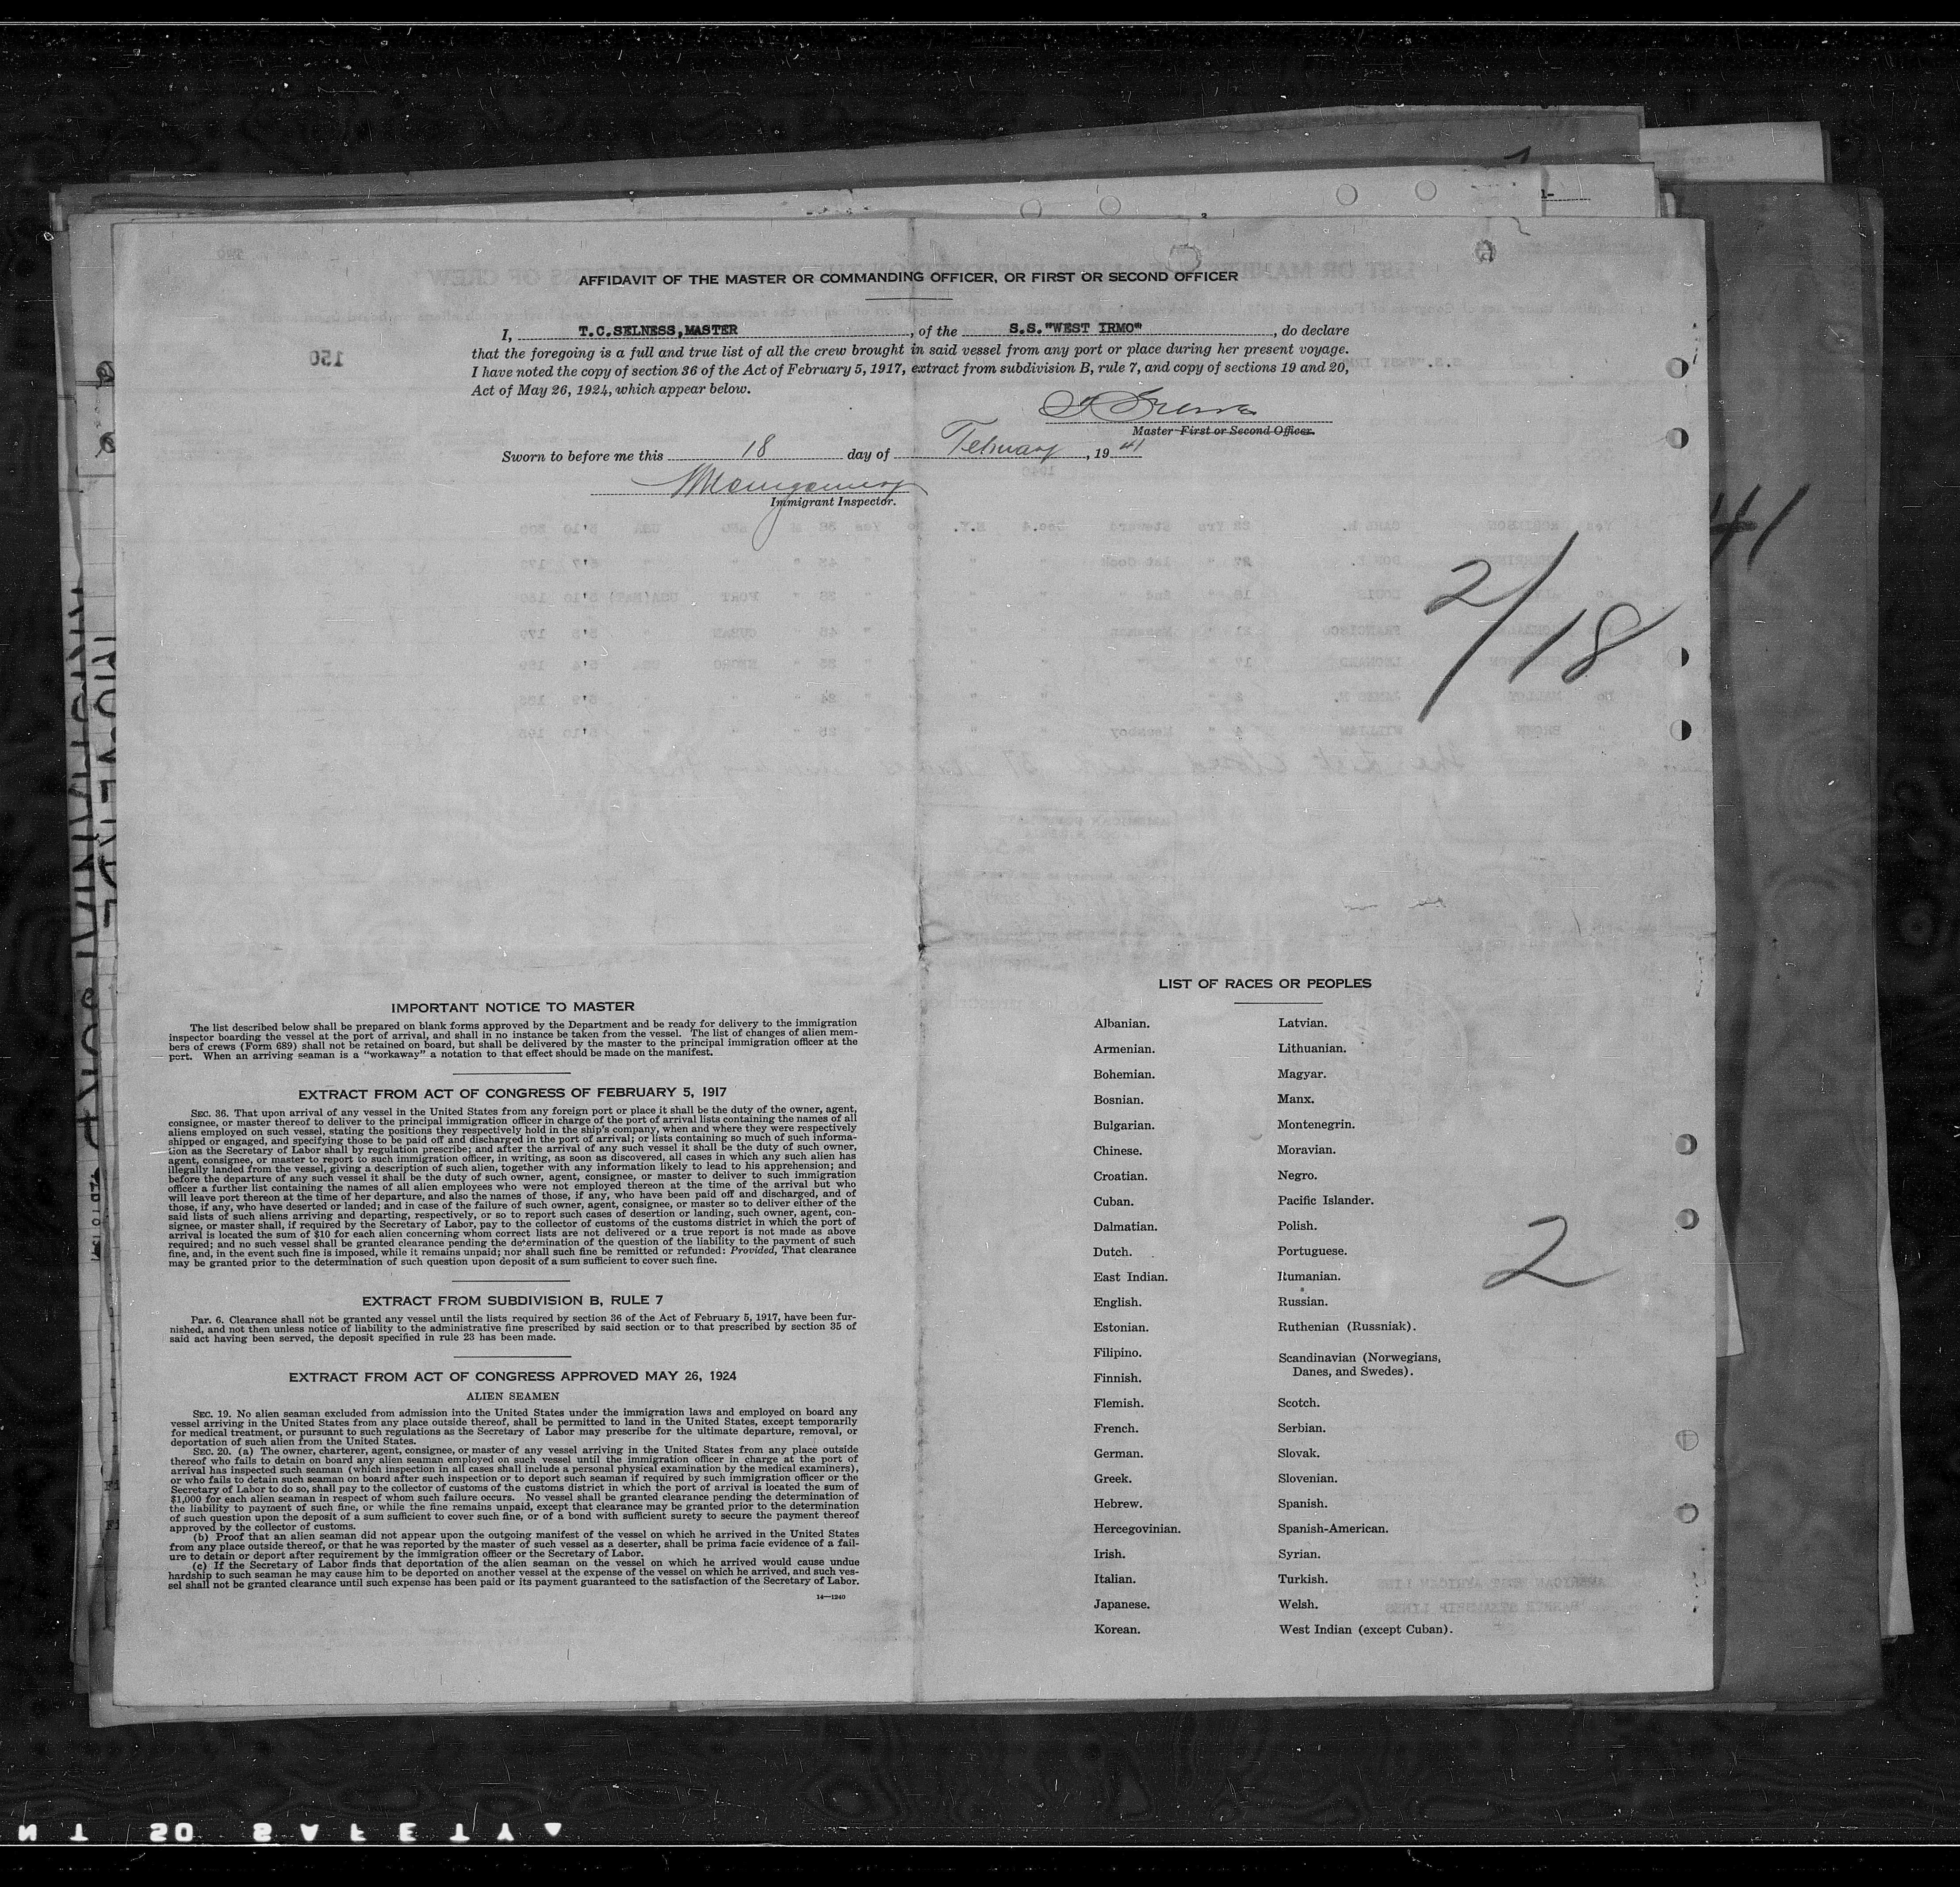 AFFIDAVIT OF THE MASTER OR COMMANDING OFFICER, OR FIRST OR SECOND OFFICER
I, T.C.SELNESS,MASTER, of the S.S."WEST IRMO", do declare
that the foregoing is a full and true list of all the crew brought in said vessel from any port or place during her present voyage.
I have noted the copy of section 36 of the Act of February 5, 1917, extract from subdivision B, rule 7, and copy of sections 19 and 20,
Act of May 26, 1924, which appear below.
Master First or Second Officer.
Sworn to before me this 18 day of February, 1941
Immigrant Inspector.
41
2/18
IMPORTANT NOTICE TO MASTER
The list described below shall be prepared on blank forms approved by the Department and be ready for delivery to the immigration
inspector boarding the vessel at the port of arrival, and shall in no instance be taken from the vessel. The list of changes of alien mem-
bers of crews (Form 689) shall not be retained on board, but shall be delivered by the master to the principal immigration officer at the
port. When an arriving seaman is a "workaway" a notation to that effect should be made on the manifest.
EXTRACT FROM ACT OF CONGRESS OF FEBRUARY 5, 1917
SEC. 36. That upon arrival of any vessel in the United States from any foreign port or place it shall be the duty of the owner, agent,
consignee, or master thereof to deliver to the principal immigration officer in charge of the port of arrival lists containing the names of all
aliens employed on such vessel, stating the positions they respectively hold in the ship's company, when and where they were respectively
shipped or engaged, and specifying those to be paid off and discharged in the port of arrival; or lists containing so much of such informa-
tion as the Secretary of Labor shall by regulation prescribe; and after the arrival of any such vessel it shall be the duty of such owner,
agent, consignee, or master to report to such immigration officer, in writing, as soon as discovered, all cases in which any such alien has
illegally landed from the vessel, giving a description of such alien, together with any information likely to lead to his apprehension; and
before the departure of any such vessel it shall be the duty of such owner, agent, consignee, or master to deliver to such immigration
officer a further list containing the names of all alien employees who were not employed thereon at the time of the arrival but who
will leave port thereon at the time of her departure, and also the names of those, if any, who have been paid off and discharged, and of
those, if any, who have deserted or landed; and in case of the failure of such owner, agent, consignee, or master so to deliver either of the
said lists of such aliens arriving and departing, respectively, or so to report such cases of desertion or landing, such owner, agent, con-
signee, or master shall, if required by the Secretary of Labor, pay to the collector of customs of the customs district in which the port of
arrival is located the sum of $10 for each alien concerning whom correct lists are not delivered or a true report is not made as above
required; and no such vessel shall be granted clearance pending the determination of the question of the liability to the payment of such
fine, and, in the event such fine is imposed, while it remains unpaid; nor shall such fine be remitted or refunded: Provided, That clearance
may be granted prior to the determination of such question upon deposit of a sum sufficient to cover such fine.
EXTRACT FROM SUBDIVISION B, RULE 7
Par. 6. Clearance shall not be granted any vessel until the lists required by section 36 of the Act of February 5, 1917, have been fur-
nished, and not then unless notice of liability to the administrative fine prescribed by said section or to that prescribed by section 35 of
said act having been served, the deposit specified in rule 23 has been made.
EXTRACT FROM ACT OF CONGRESS APPROVED MAY 26, 1924
ALIEN SEAMEN
SEC. 19. No alien seaman excluded from admission into the United States under the immigration laws and employed on board any
vessel arriving in the United States from any place outside thereof, shall be permitted to land in the United States, except temporarily
for medical treatment, or pursuant to such regulations as the Secretary of Labor may prescribe for the ultimate departure, removal, or
deportation of such alien from the United States.
SEC. 20. (a) The owner, charterer, agent, consignee, or master of any vessel arriving in the United States from any place outside
thereof who fails to detain on board any alien seaman employed on such vessel until the immigration officer in charge at the port of
arrival has inspected such seaman (which inspection in all cases shall include a personal physical examination by the medical examiners),
or who fails to detain such seaman on board after such inspection or to deport such seaman if required by such immigration officer or the
Secretary of Labor to do so, shall pay to the collector of customs of the customs district in which the port of arrival is located the sum of
$1,000 for each alien seaman in respect of whom such failure occurs. No vessel shall be granted clearance pending the determination of
the liability to payment of such fine, or while the fine remains unpaid, except that clearance may be granted prior to the determination
of such question upon the deposit of a sum sufficient to cover such fine, or of a bond with sufficient surety to secure the payment thereof
approved by the collector of customs.
(b) Proof that an alien seaman did not appear upon the outgoing manifest of the vessel on which he arrived in the United States
from any place outside thereof, or that he was reported by the master of such vessel as a deserter, shall be prima facie evidence of a fail-
ure to detain or deport after requirement by the immigration officer or the Secretary of Labor.
(c) If the Secretary of Labor finds that deportation of the alien seaman on the vessel on which he arrived would cause undue
hardship to such seaman he may cause him to be deported on another vessel at the expense of the vessel on which he arrived, and such ves-
sel shall not be granted clearance until such expense has been paid or its payment guaranteed to the satisfaction of the Secretary of Labor.
14—1240
LIST OF RACES OR PEOPLES
Albanian.
Armenian.
Bohemian.
Bosnian.
Bulgarian.
Chinese.
Croatian.
Cuban.
Dalmatian.
Dutch.
East Indian.
English.
Estonian.
Filipino.
Finnish.
Flemish.
French.
German.
Greek.
Hebrew.
Hercegovinian.
Irish.
Italian.
Japanese.
Korean.
Latvian.
Lithuanian.
Magyar.
Manx.
Montenegrin.
Moravian.
Negro.
Pacific Islander.
Polish.
Portuguese.
Rumanian.
Russian.
Ruthenian (Russniak).
Scandinavian (Norwegians,
Danes, and Swedes).
Scotch.
Serbian.
Slovak.
Slovenian.
Spanish.
Spanish-American.
Syrian.
Turkish.
Welsh.
West Indian (except Cuban).
2
SAFETY